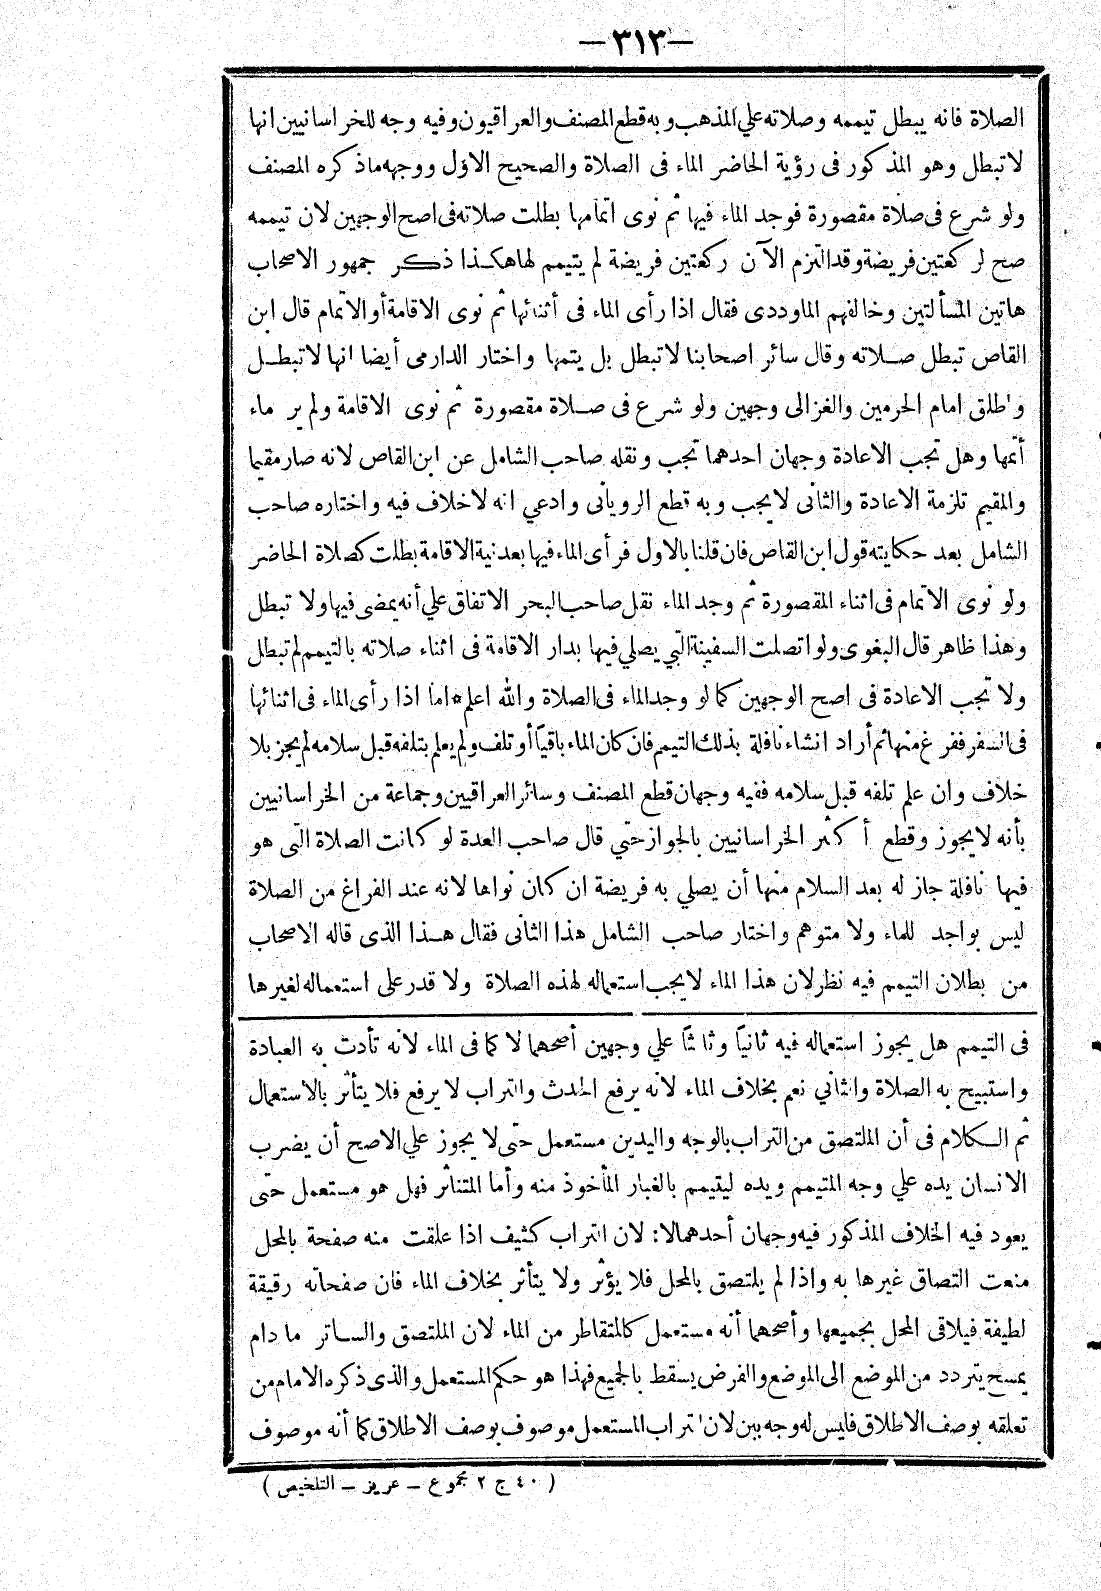 —٣١٣—
الصلاة فانه يبطل تيممه وصلاته علي المذهب وبه قطع المصنف والعراقيون وفيه وجه للخراسانيين انها
لا تبطل وهو المذكور فى رؤية الحاضر الماء فى الصلاة والصحيح الاول ووجهه ماذكره المصنف
ولو شرع فى صلاة مقصورة فوجد الماء فيها ثم نوى اتمامها بطلت صلاته فى اصح الوجهين لان تيممه
صح لركعتين فريضة وقد التزم الآن ركعتين فريضة لم يتيمم لها هكذا ذكر جمهور الاصحاب
هاتين المسألتين وخالفهم الماوردى فقال اذا رأى الماء فى أثنائها ثم نوى الاقامة أو الاتمام قال ابن
القاص تبطل صلاته وقال سائر اصحابنا لا تبطل بل يتمها واختار الدارمى أيضا انها لا تبطل
واطلق امام الحرمين والغزالى وجهين ولو شرع فى صلاة مقصورة ثم نوى الاقامة ولم ير ماء
أتمها وهل تجب الاعادة وجهان احدهما تجب ونقله صاحب الشامل عن ابن القاص لانه صار مقيما
والمقيم تلزمة الاعادة والثانى لا يجب وبه قطع الرويانى وادعي انه لا خلاف فيه واختاره صاحب
الشامل بعد حكايته قول ابن القاص فان قلنا بالاول فرأى الماء فيها بعد نية الاقامة بطلت كصلاة الحاضر
ولو نوى الاتمام فى اثناء المقصورة ثم وجد الماء نقل صاحب البحر الاتفاق علي أنه يمضى فيها ولا تبطل
وهذا ظاهر قال البغوى ولو اتصلت السفينة التي يصلي فيها بدار الاقامة فى اثناء صلاته بالتيمم لم تبطل
ولا تجب الاعادة فى اصح الوجهين كما لو وجد الماء فى الصلاة والله اعلم * اما اذا رأى الماء فى اثنائها
فى السفر ففرغ منها ثم أراد انشاء نافلة بذلك التيمم فان كان الماء باقياً أو تلف ولم يعلم بتلفه قبل سلامه لم يجز بلا
خلاف وان علم تلفه قبل سلامه ففيه وجهان قطع المصنف وسائر العراقيين وجماعة من الخراسانيين
بأنه لا يجوز وقطع أكثر الخراسانيين بالجواز حتي قال صاحب العدة لو كانت الصلاة التى هو
فيها نافلة جاز له بعد السلام منها أن يصلي به فريضة ان كان نواها لانه عند الفراغ من الصلاة
ليس بواجد للماء ولا متوهم واختار صاحب الشامل هذا الثانى فقال هذا الذى قاله الاصحاب
من بطلان التيمم فيه نظر لان هذا الماء لا يجب استعماله لهذه الصلاة ولا قدر على استعماله لغيرها
فى التيمم هل يجوز استعماله فيه ثانياً وثالثاً علي وجهين أصحهما لا كما فى الماء لانه تأدت به العبادة
واستبيح به الصلاة والثاني نعم بخلاف الماء لانه يرفع الحدث والتراب لا يرفع فلا يتأثر بالاستعمال
ثم الكلام فى أن الملتصق من التراب بالوجه واليدين مستعمل حتى لا يجوز علي الاصح أن يضرب
الانسان يده علي وجه المتيمم ويده ليتيمم بالغبار المأخوذ منه وأما المتناثر فهل هو مستعمل حتى
يعود فيه الخلاف المذكور فيه وجهان أحدهما لا: لان التراب كثيف اذا علقت منه صفحة بالمحل
منعت التصاق غيرها به واذا لم يلتصق بالمحل فلا يؤثر ولا يتأثر بخلاف الماء فان صفحاته رقيقة
لطيفة فيلاقى المحل بجميعها وأصحهما أنه مستعمل كالمتقاطر من الماء لان الملتصق والساتر ما دام
يمسح يتردد من الموضع الى الموضع والفرض يسقط بالجميع فهذا هو حكم المستعمل والذى ذكره الامام من
تعلقه بوصف الاطلاق فليس له وجه بين لان التراب المستعمل موصوف بوصف الاطلاق كما أنه موصوف
( ٤٠ ج ٢ مجموع – عزيز – التلخيص )